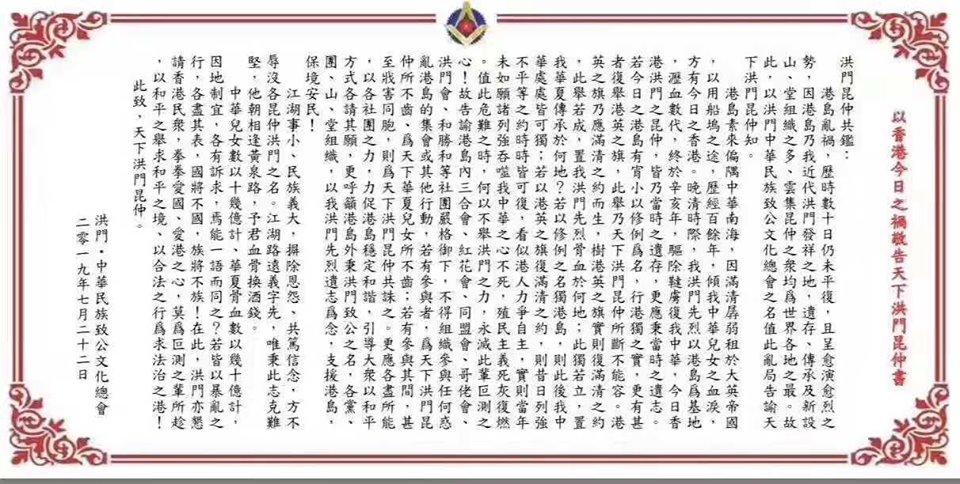 以香港今日之禍敬告天下洪門昆仲書
洪門昆仲共鑑：
港島亂禍，歷時數十日仍未平復，且呈愈演愈烈之
勢，因港島乃我近代洪門發祥之地，遺存、傳承及新設
山、堂組織之多、雲集昆仲之衆均爲世界各地之最。故
此，以洪門中華民族致公文化總會之名值此亂局告諭天
下洪門昆仲知。
港島素來偏隅中華南海，因滿清孱弱租於大英帝國
，以用船塢之途，歷經百餘年，傾我中華兒女之血淚，
方有今日之香港。晚清時際，我洪門先烈以港島爲基地
，瀝血數代，終於辛亥年，驅除韃虜復我中華，今日香
港洪門之昆仲，皆乃當時之遺存，更應秉當時之遺志。
若今日之港島有宵小以修例爲名，行港獨之實，更有甚
者復舉港英之旗，此舉乃天下洪門昆仲所斷不能容。港
英之旗乃應滿清之約而生，樹港英之旗實則復滿清之約
，此舉若成，置我洪門先烈骨血於何地；此獨若立，置
我華夏傳承於何地？若以修例之名獨港島，則此後我中
華處處皆可獨；若以港英之旗復滿清之約，則昔日列強
不平等之約時時皆可復，看似港人力爭自主，實則當年
未如願諸列強吞噬我中華之心不死，殖民主義死灰復燃
。值此危難之時，何以不舉洪門之力，永滅此輩叵測之
心！故告諭港島內三合會、紅花會、同盟會、哥佬會、
洪門會、和勝和等社團嚴格御下，不得組織參與任何惑
亂港島的集會或其他行動，若有參與者，爲天下洪門昆
仲所不齒、爲天下華夏兒女所不齒；若有參與其間，甚
至戕害同胞，則爲天下洪門昆仲共誅之。更應各盡所能
，以各社團之力，力促港島穩定和諧，引導大衆以和平
方式各請其願，更呼籲港島外秉洪門致公之名，各黨、
團、山、堂組織，以我洪門先烈遺志爲念，支援港島，
保境安民！
江湖事小、民族義大，摒除恩怨、共篤信念，方不
辱沒各昆仲洪門之名。江湖路遠義字先，唯秉此志克難
堅，他朝相逢黃泉路，予君血骨換酒錢。
中華兒女數以十幾億計、華夏骨血數以幾十億計，
因地制宜，各有訴求，焉能一語而同之？若皆以暴亂之
行，各盡其表，國將不國，族將不族！在此，洪門亦懇
請香港民衆，拳拳愛國、愛港之心，莫爲叵測之輩所趁
，以和平之舉求和平之境、以合法之行爲求法治之港！
此致，天下洪門昆仲。
洪門·中華民族致公文化總會
二零一九年七月二十二日